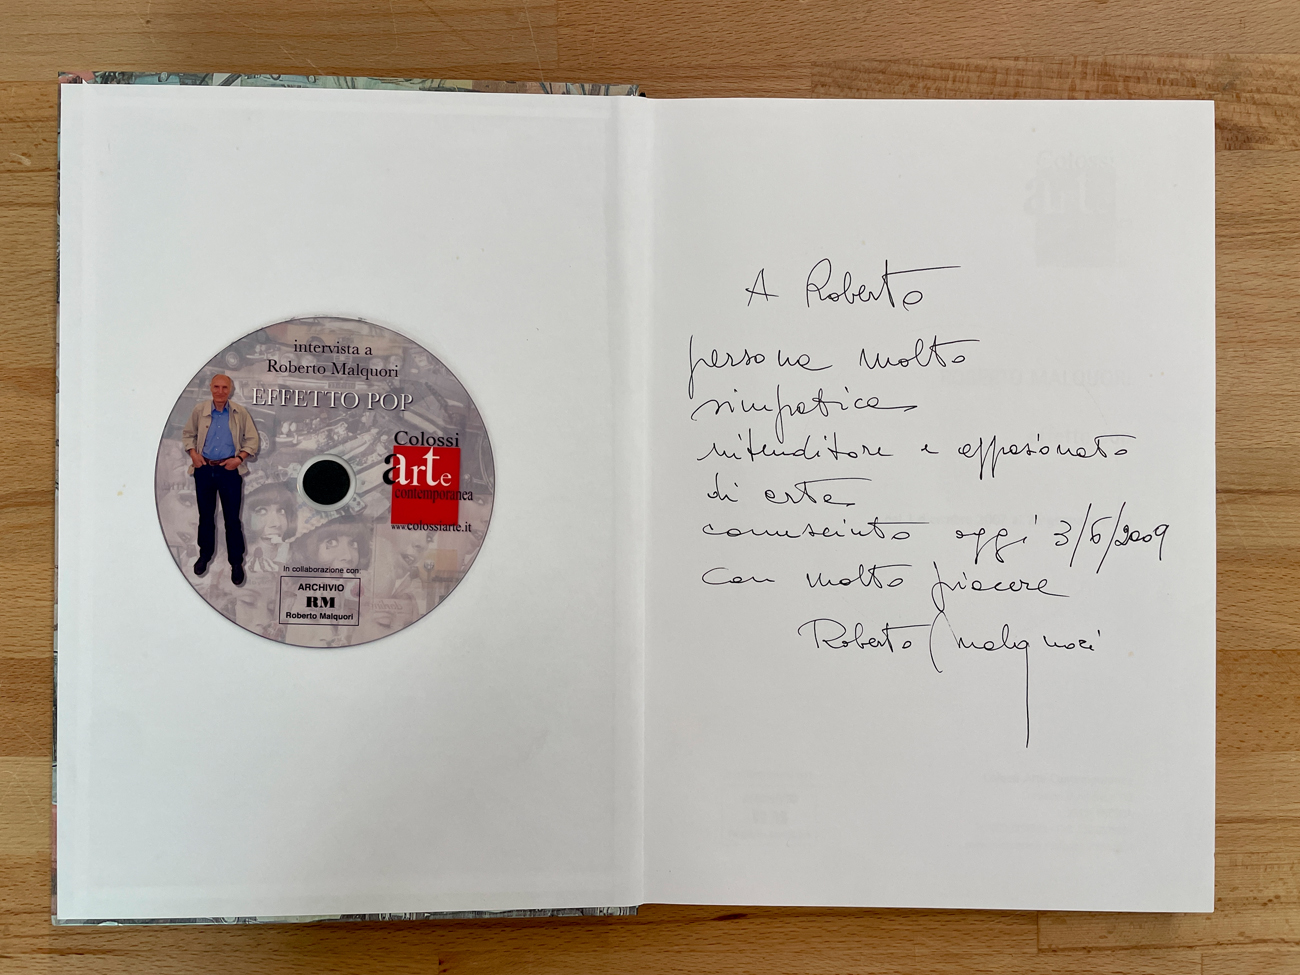 intervista a
Roberto Malquori
EFFETTO POP
Colossi
arte
contemporanea
www.colossiarte.it
In collaborazione con
ARCHIVIO
RM
Roberto Malquori
Colossi
art
A Roberto
persona molto
simpatica
intenditore e appasionato
di arte
conusciuto oggi 3/6/2009
con molto piacere
Roberto Malquori